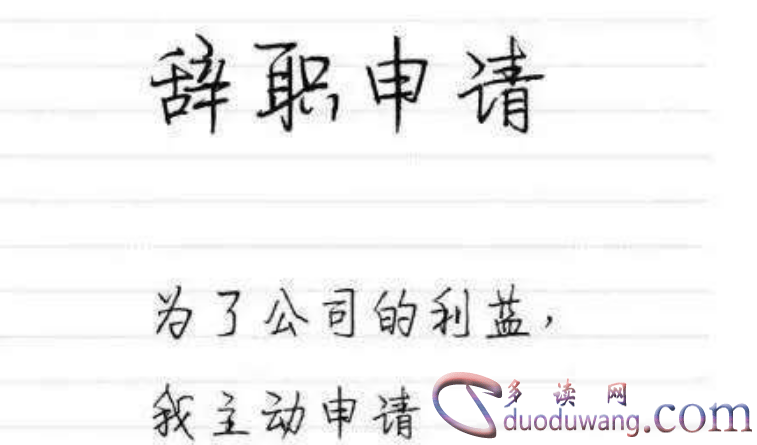 辞职申请
为了公司的利益，
我主动申请
多读网
duoduwang.com